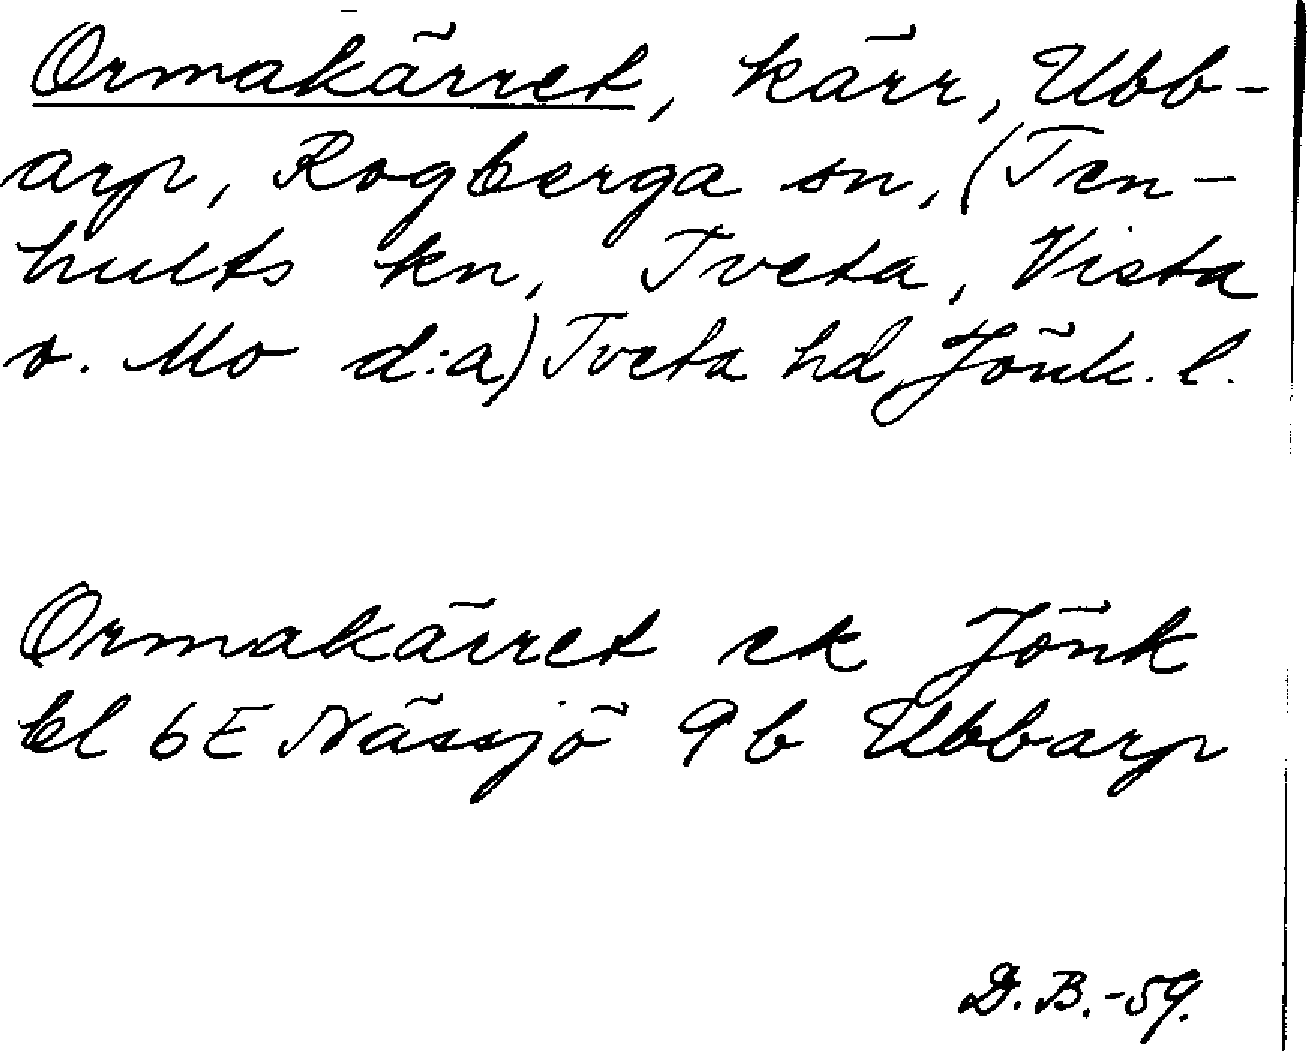 Ormakärret, kärr, Ubb-
arp, Rogberga sn, (Ten-
hults kn, Tveta, Vista
o. Mo d:a) Tveta hd, Jönk. l.
Ormakärret ek Jönk
bl 6E Nässjö 9b Ubbarp
D.B.-59.